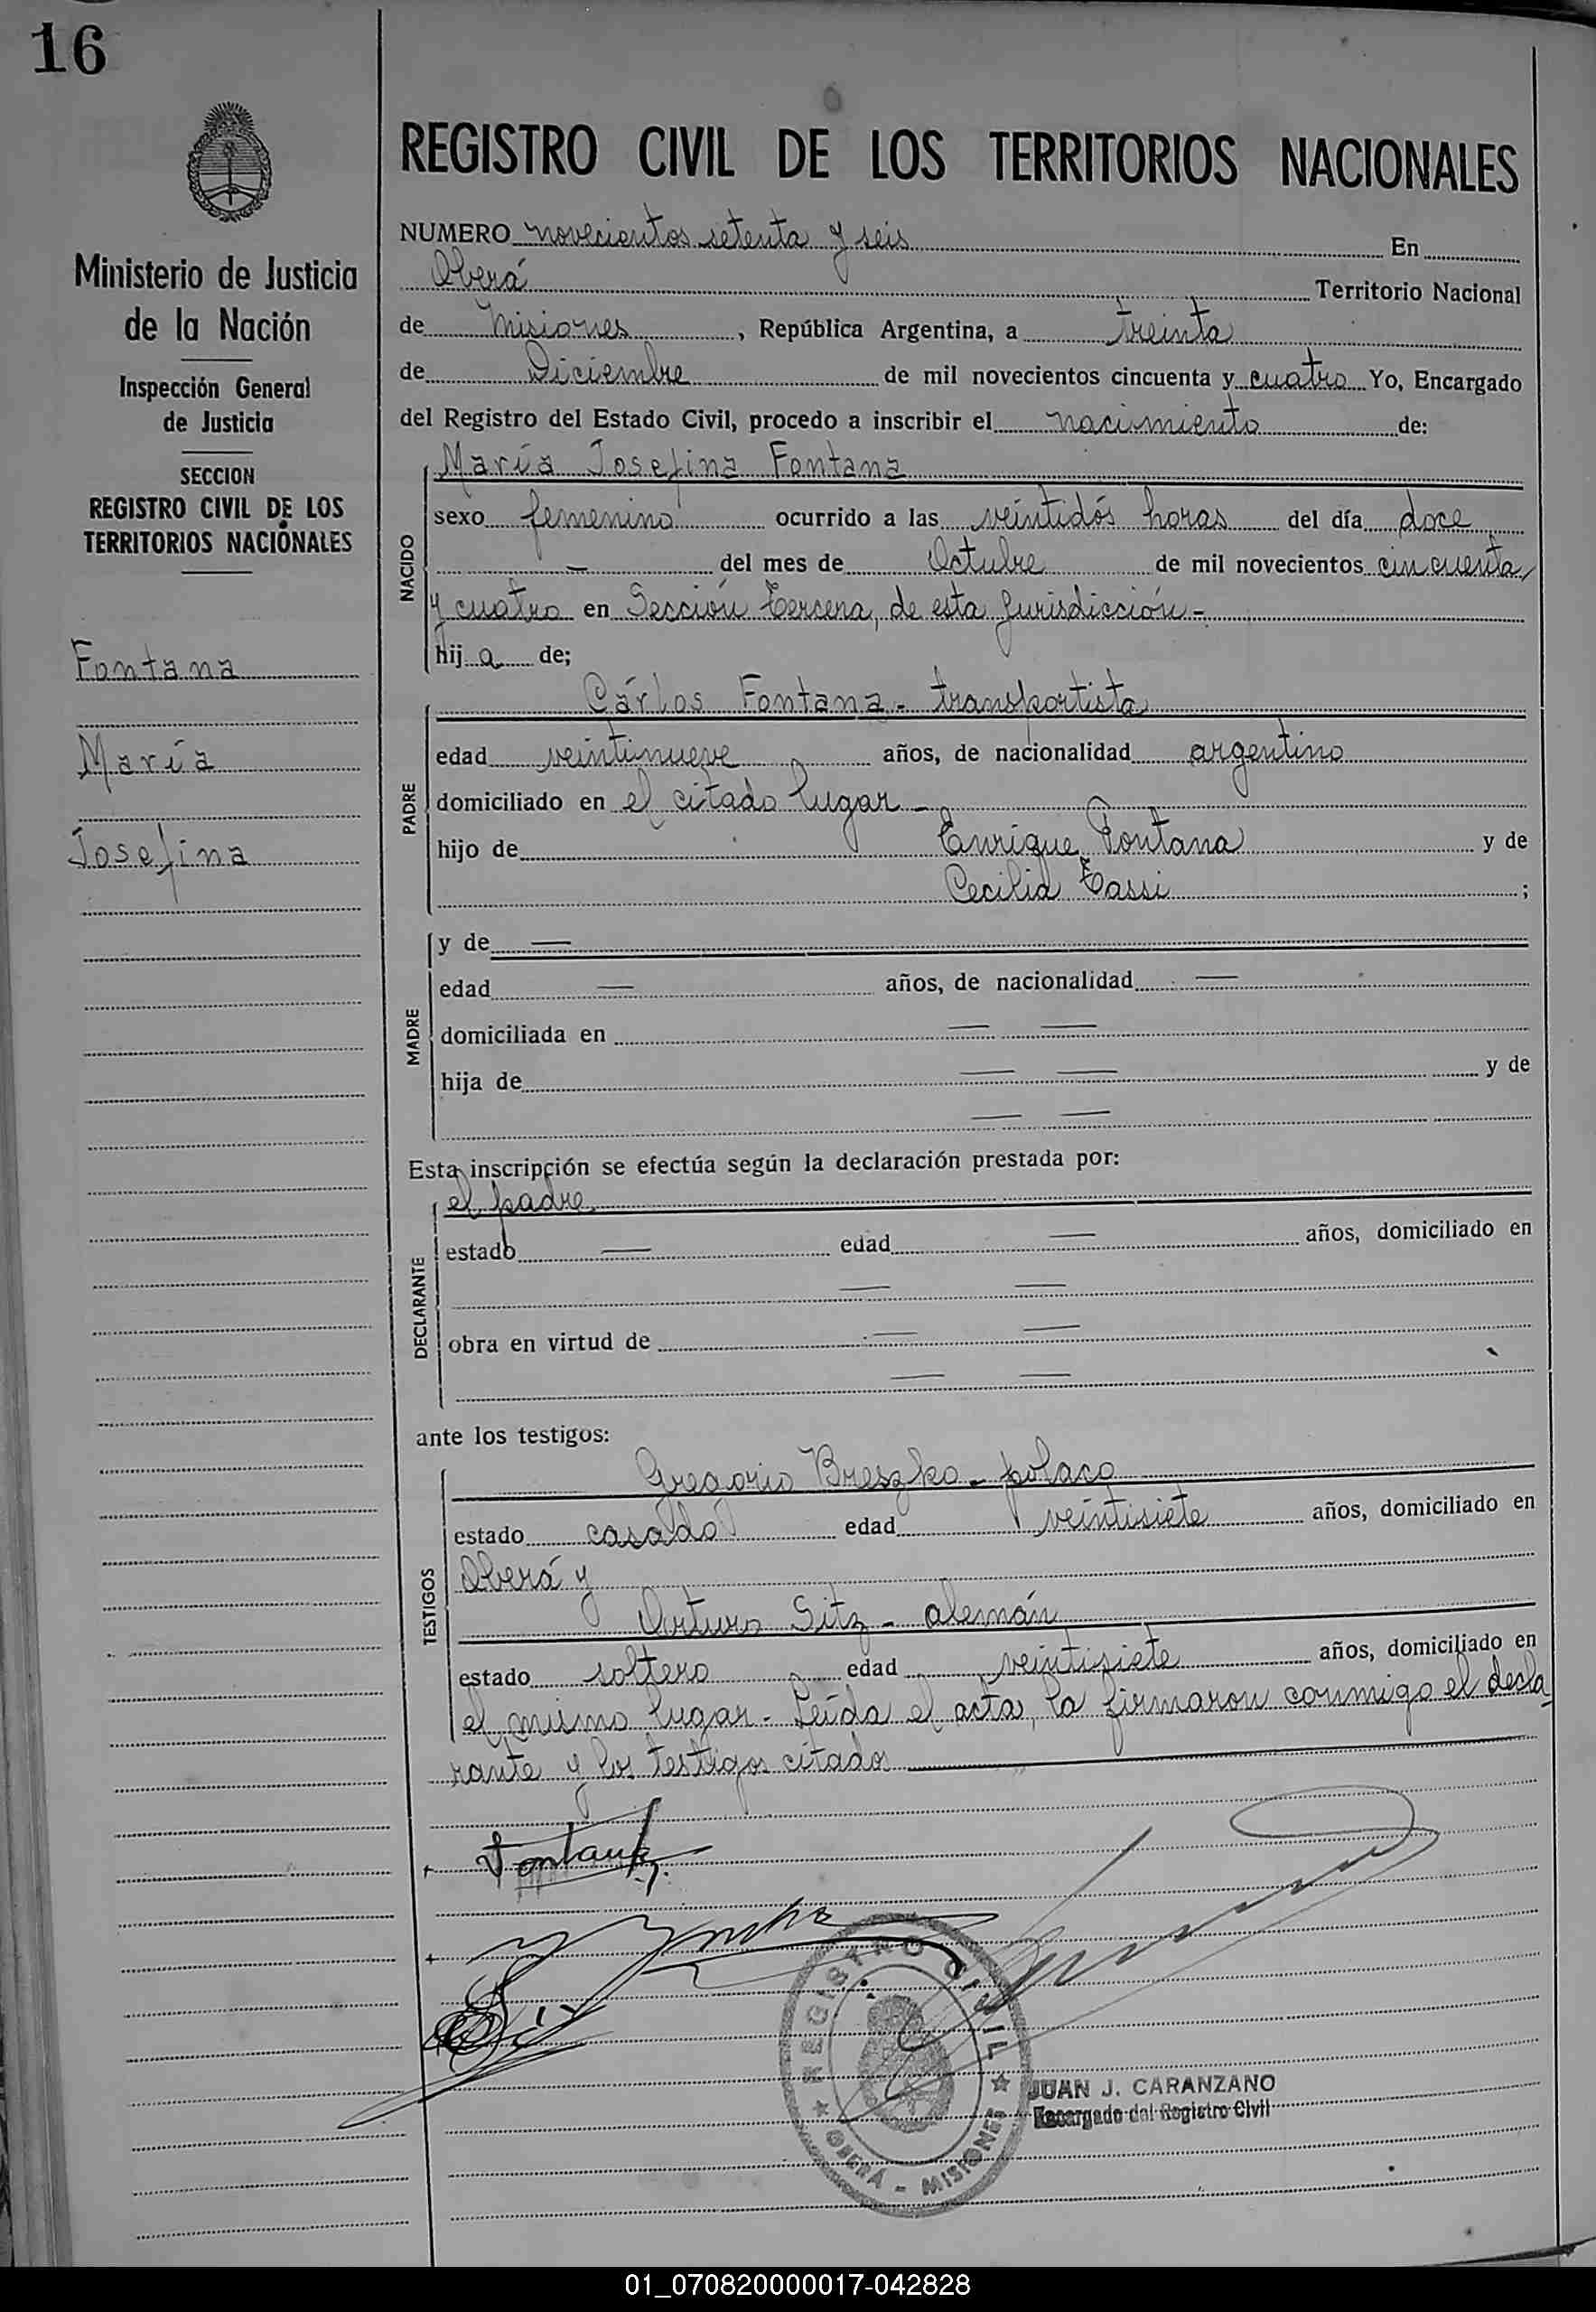 16
Ministerio de Justicia
de la Nación
Inspección General
de Justicia
SECCION
REGISTRO CIVIL DE LOS
TERRITORIOS NACIONALES
Fontana
María
Josefina
REGISTRO CIVIL DE LOS TERRITORIOS NACIONALES
NUMERO novecientos setenta y seis En
Oberá Territorio Nacional
de Misiones, República Argentina, a treinta
de Diciembre de mil novecientos cincuenta y cuatro Yo, Encargado
del Registro del Estado Civil, procedo a inscribir el nacimiento de:
NACIDO
María Josefina Fontana
sexo femenino ocurrido a las veintidós horas del día doce
— del mes de Octubre de mil novecientos cincuenta
y cuatro en Sección Tercera, de esta Jurisdicción -
hij a de;
PADRE
Cárlos Fontana - transportista
edad veintinueve años, de nacionalidad argentino
domiciliado en el citado lugar -
hijo de Enrique Fontana y de
Cecilia Tassi ;
MADRE
y de —
edad — años, de nacionalidad —
domiciliada en — —
hija de — — y de
— —
Esta inscripción se efectúa según la declaración prestada por:
DECLARANTE
el padre
estado — edad — años, domiciliado en
— —
obra en virtud de — —
— —
ante los testigos:
TESTIGOS
Gregorio Breszko - polaco
estado casado edad veintisiete años, domiciliado en
Oberá y
Arturo Sitz - alemán
estado soltero edad veintisiete años, domiciliado en
el mismo lugar - Leída el acta, la firmaron conmigo el decla-
rante y los testigos citados
Fontana
REGISTRO CIVIL
OBERÁ - MISIONES
JUAN J. CARANZANO
Encargado del Registro Civil
01_070820000017-042828